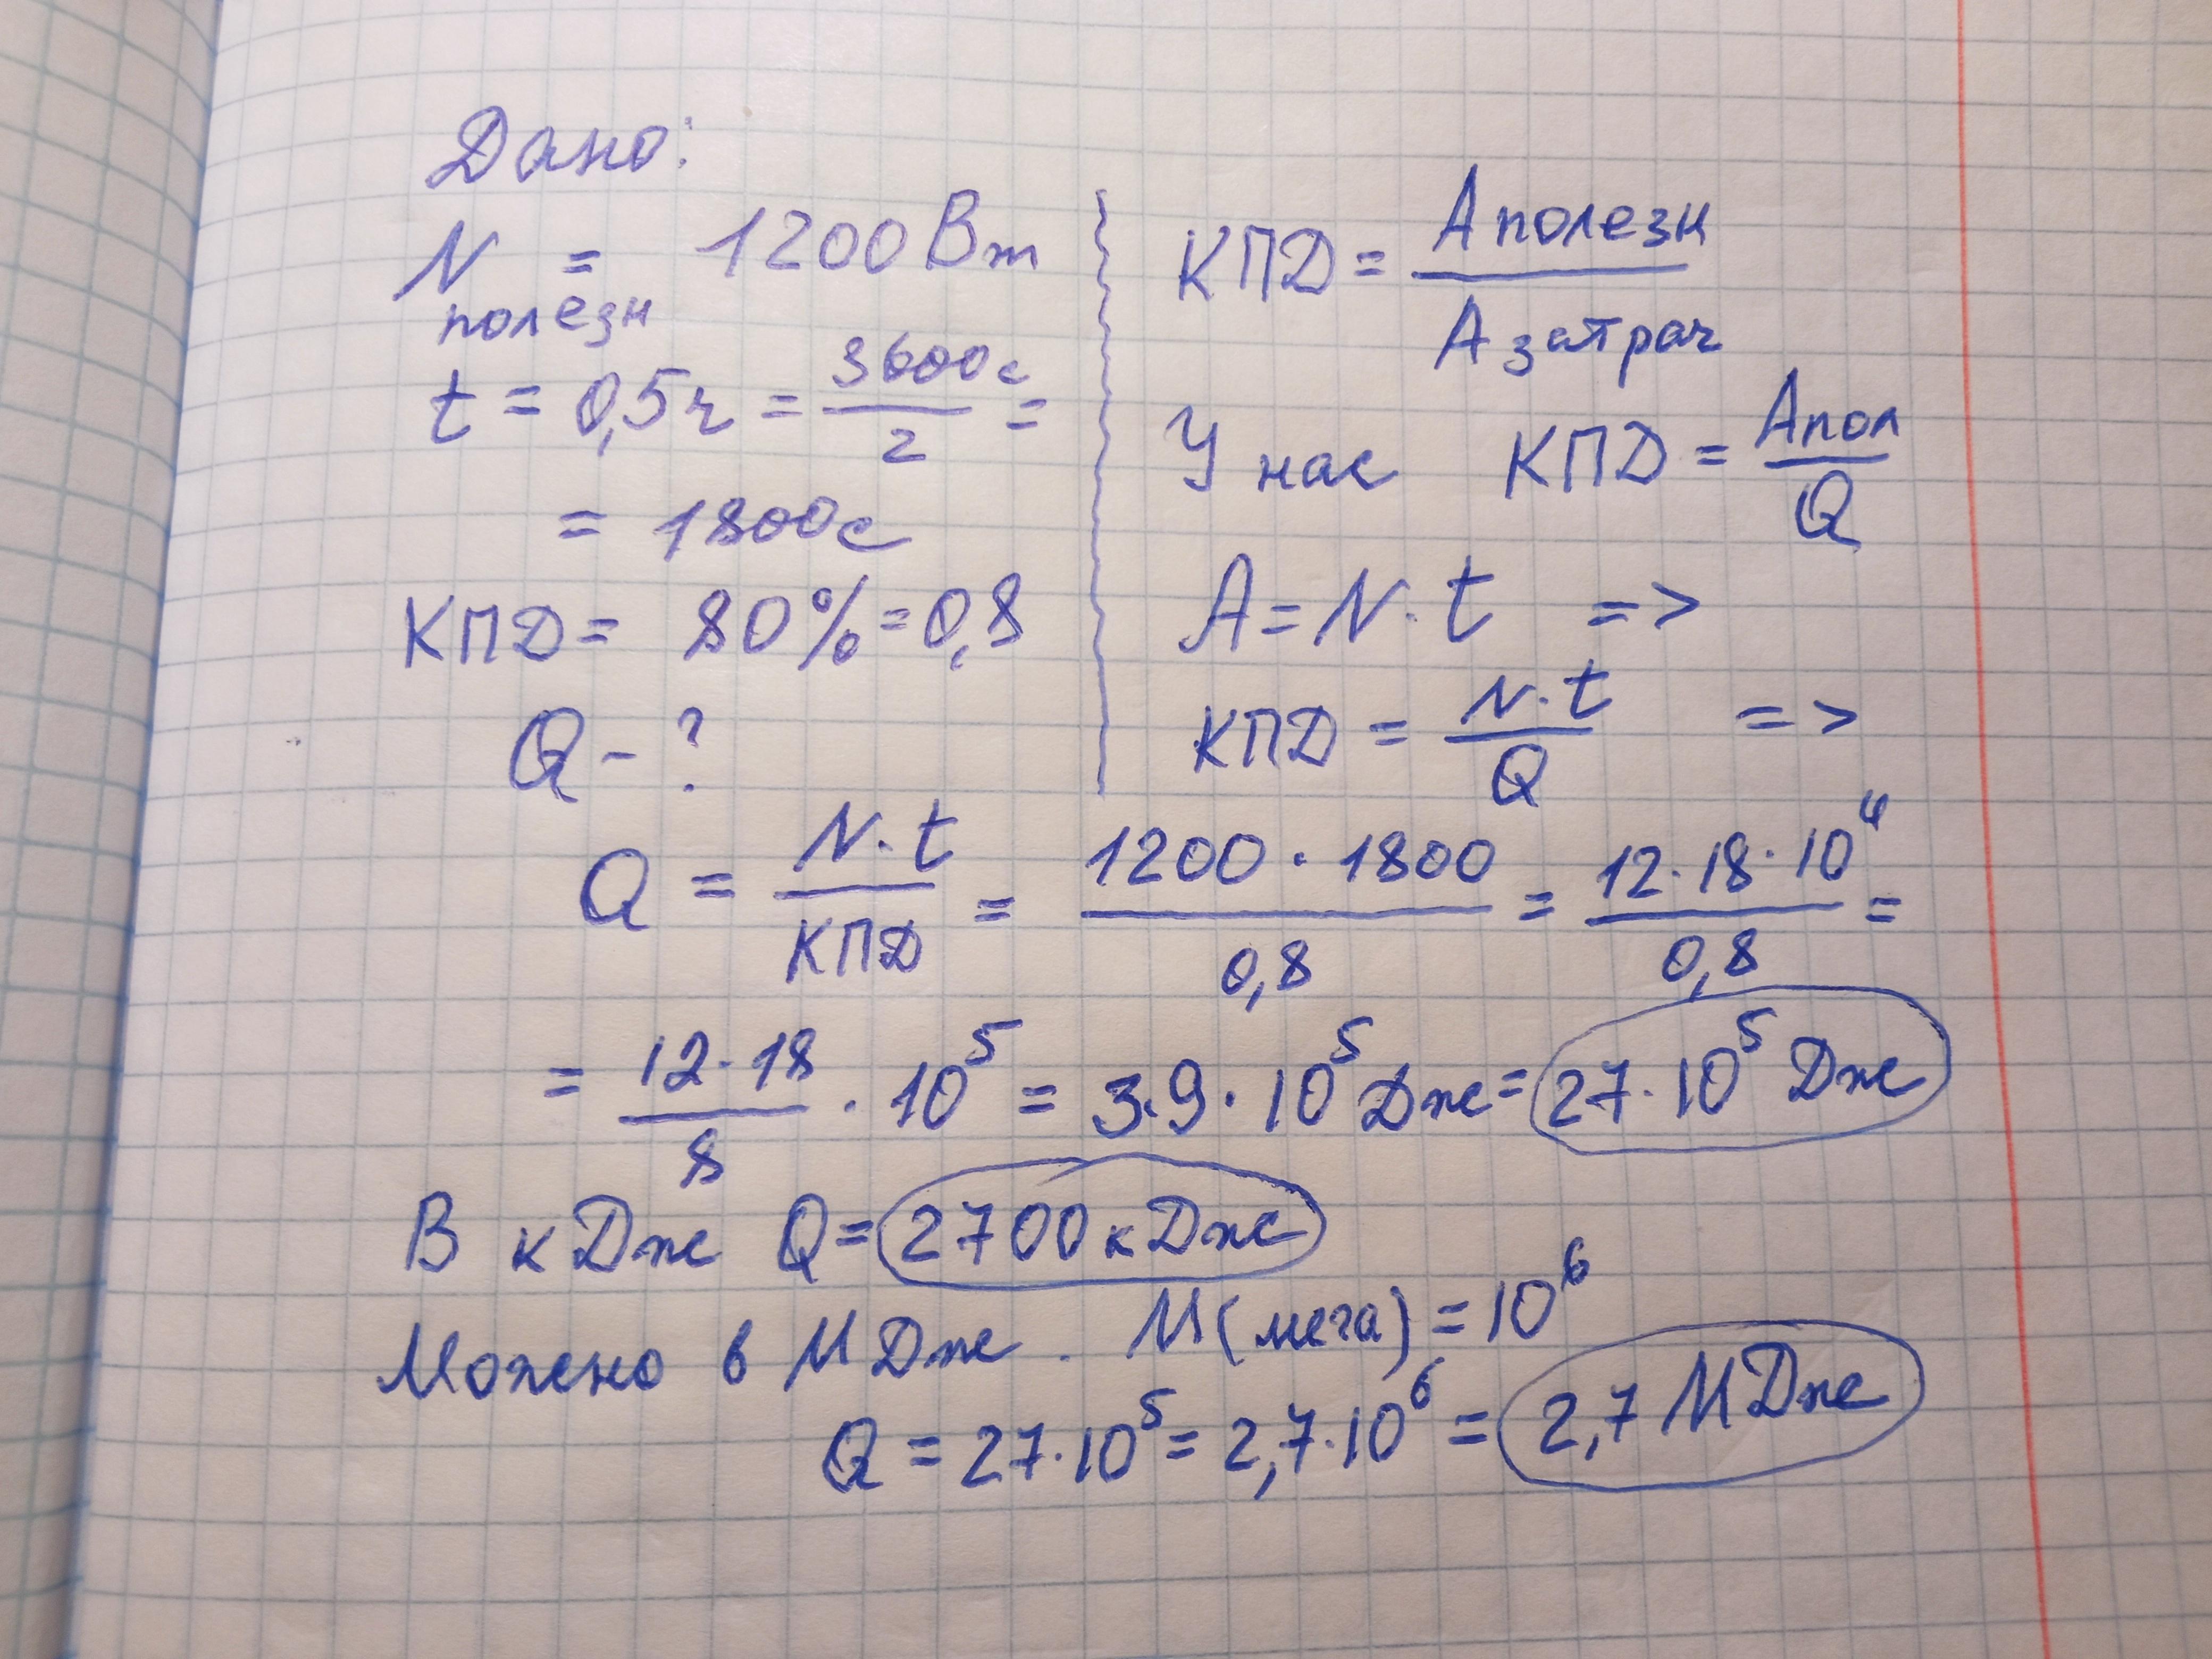 Дано:
N полезн = 1200 Вт
t = 0,5 ч = 3600 с / 2 =
= 1800 с
КПД = 80% = 0,8
Q - ?
КПД = А полезн / А затрач
У нас КПД = Апол / Q
A = N · t =>
КПД = N · t / Q =>
Q = N · t / КПД = 1200 · 1800 / 0,8 = 12 · 18 · 10^4 / 0,8 =
= 12 · 18 / 8 · 10^5 = 3 · 9 · 10^5 Дж = 27 · 10^5 Дж
В кДж Q = 2700 кДж
Можно в МДж. М (мега) = 10^6
Q = 27 · 10^5 = 2,7 · 10^6 = 2,7 МДж